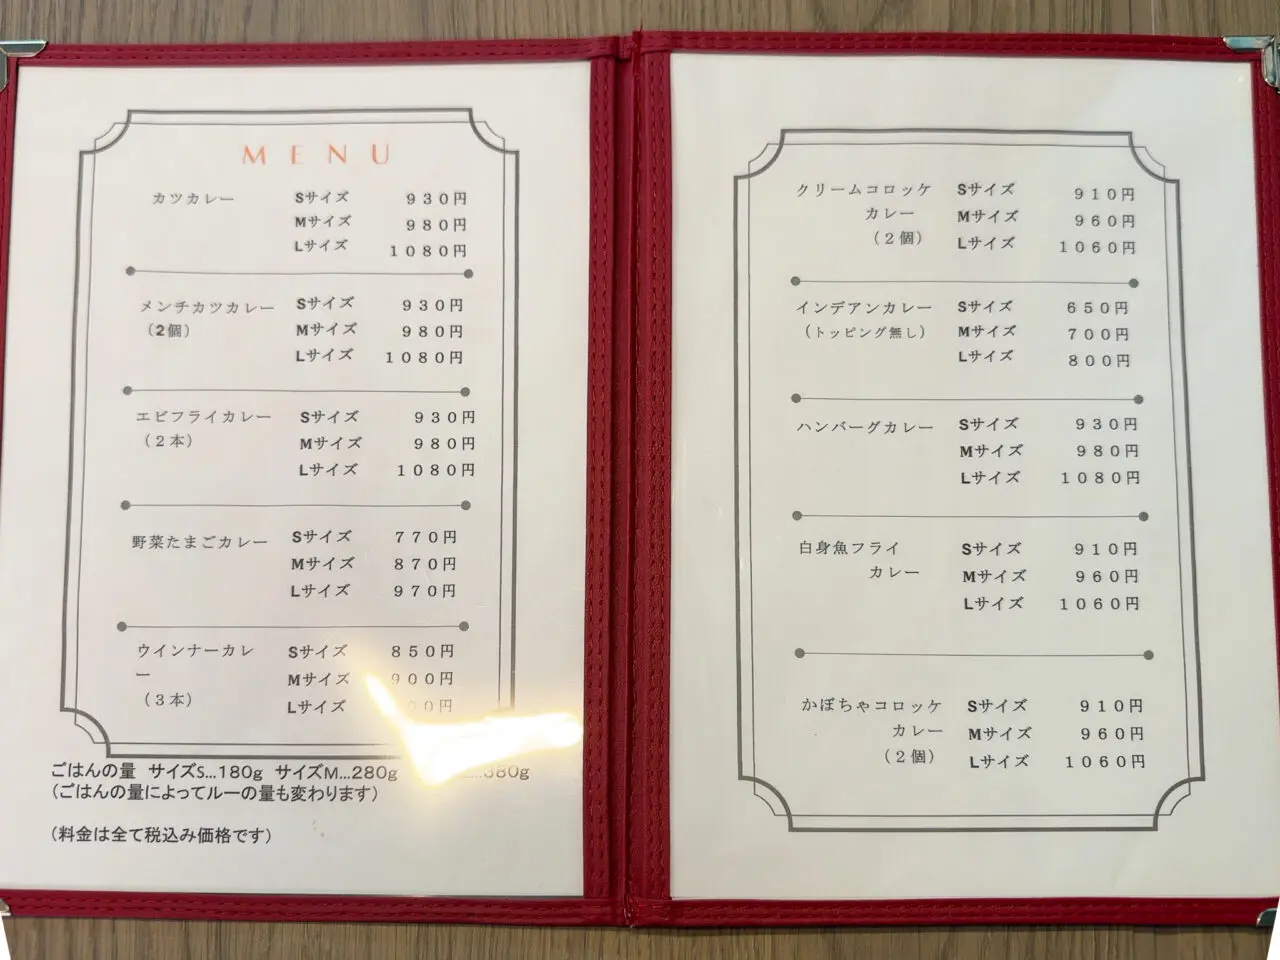 MENU
カツカレー Sサイズ 930円
Mサイズ 980円
Lサイズ 1080円
メンチカツカレー Sサイズ 930円
(2個) Mサイズ 980円
Lサイズ 1080円
エビフライカレー Sサイズ 930円
(2本) Mサイズ 980円
Lサイズ 1080円
野菜たまごカレー Sサイズ 770円
Mサイズ 870円
Lサイズ 970円
ウインナーカレ Sサイズ 850円
ー Mサイズ 900円
(3本) Lサイズ
ごはんの量 サイズS...180g サイズM...280g ...380g
(ごはんの量によってルーの量も変わります)
(料金は全て税込み価格です)
クリームコロッケ Sサイズ 910円
カレー Mサイズ 960円
(2個) Lサイズ 1060円
インデアンカレー Sサイズ 650円
(トッピング無し) Mサイズ 700円
Lサイズ 800円
ハンバーグカレー Sサイズ 930円
Mサイズ 980円
Lサイズ 1080円
白身魚フライ Sサイズ 910円
カレー Mサイズ 960円
Lサイズ 1060円
かぼちゃコロッケ Sサイズ 910円
カレー Mサイズ 960円
(2個) Lサイズ 1060円